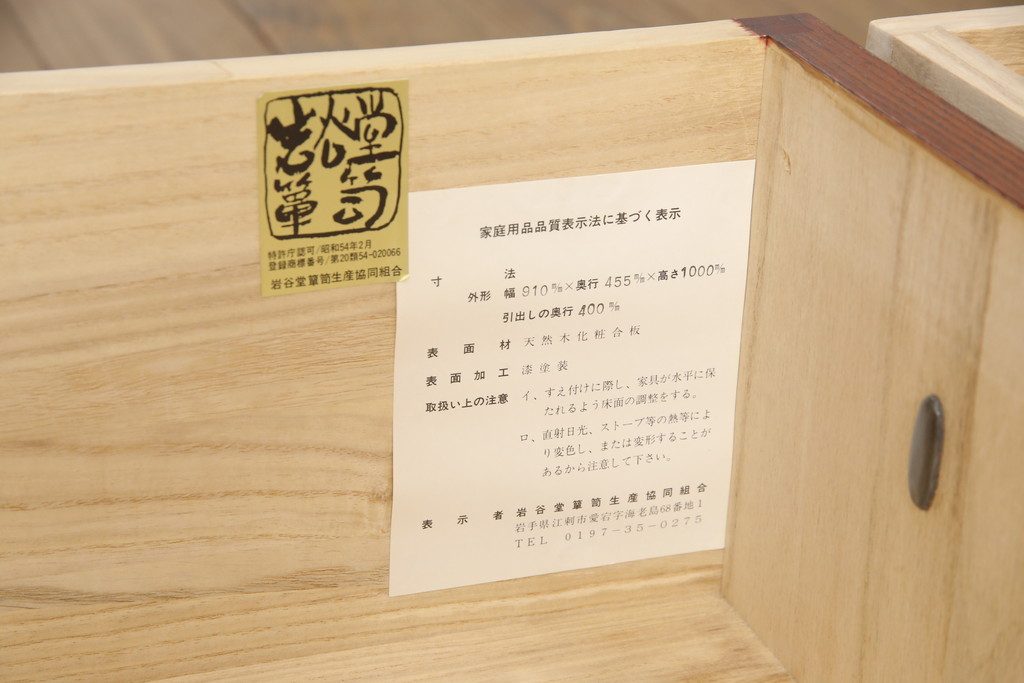 岩谷堂
簞笥
特許庁認可/昭和54年2月
登録商標番号/第20類54-020066
岩谷堂簞笥生産協同組合
家庭用品品質表示法に基づく表示
寸法
外形 幅 910㎜×奥行 455㎜×高さ1000㎜
引出しの奥行 400㎜
表面材 天然木化粧合板
表面加工 漆塗装
取扱い上の注意 イ、すえ付けに際し、家具が水平に保
たれるよう床面の調整をする。
ロ、直射日光、ストーブ等の熱等によ
り変色し、または変形することが
あるから注意して下さい。
表示者 岩谷堂簞笥生産協同組合
岩手県江刺市愛宕字海老島68番地1
TEL 0197-35-0275